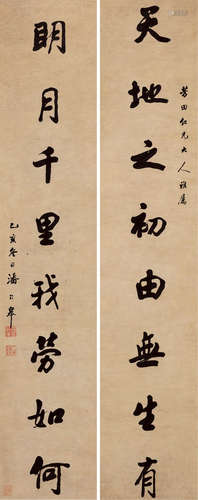 天地之初由無生有
芳田仁兄大人雅屬
明月千里我勞如何
乙亥冬日潘